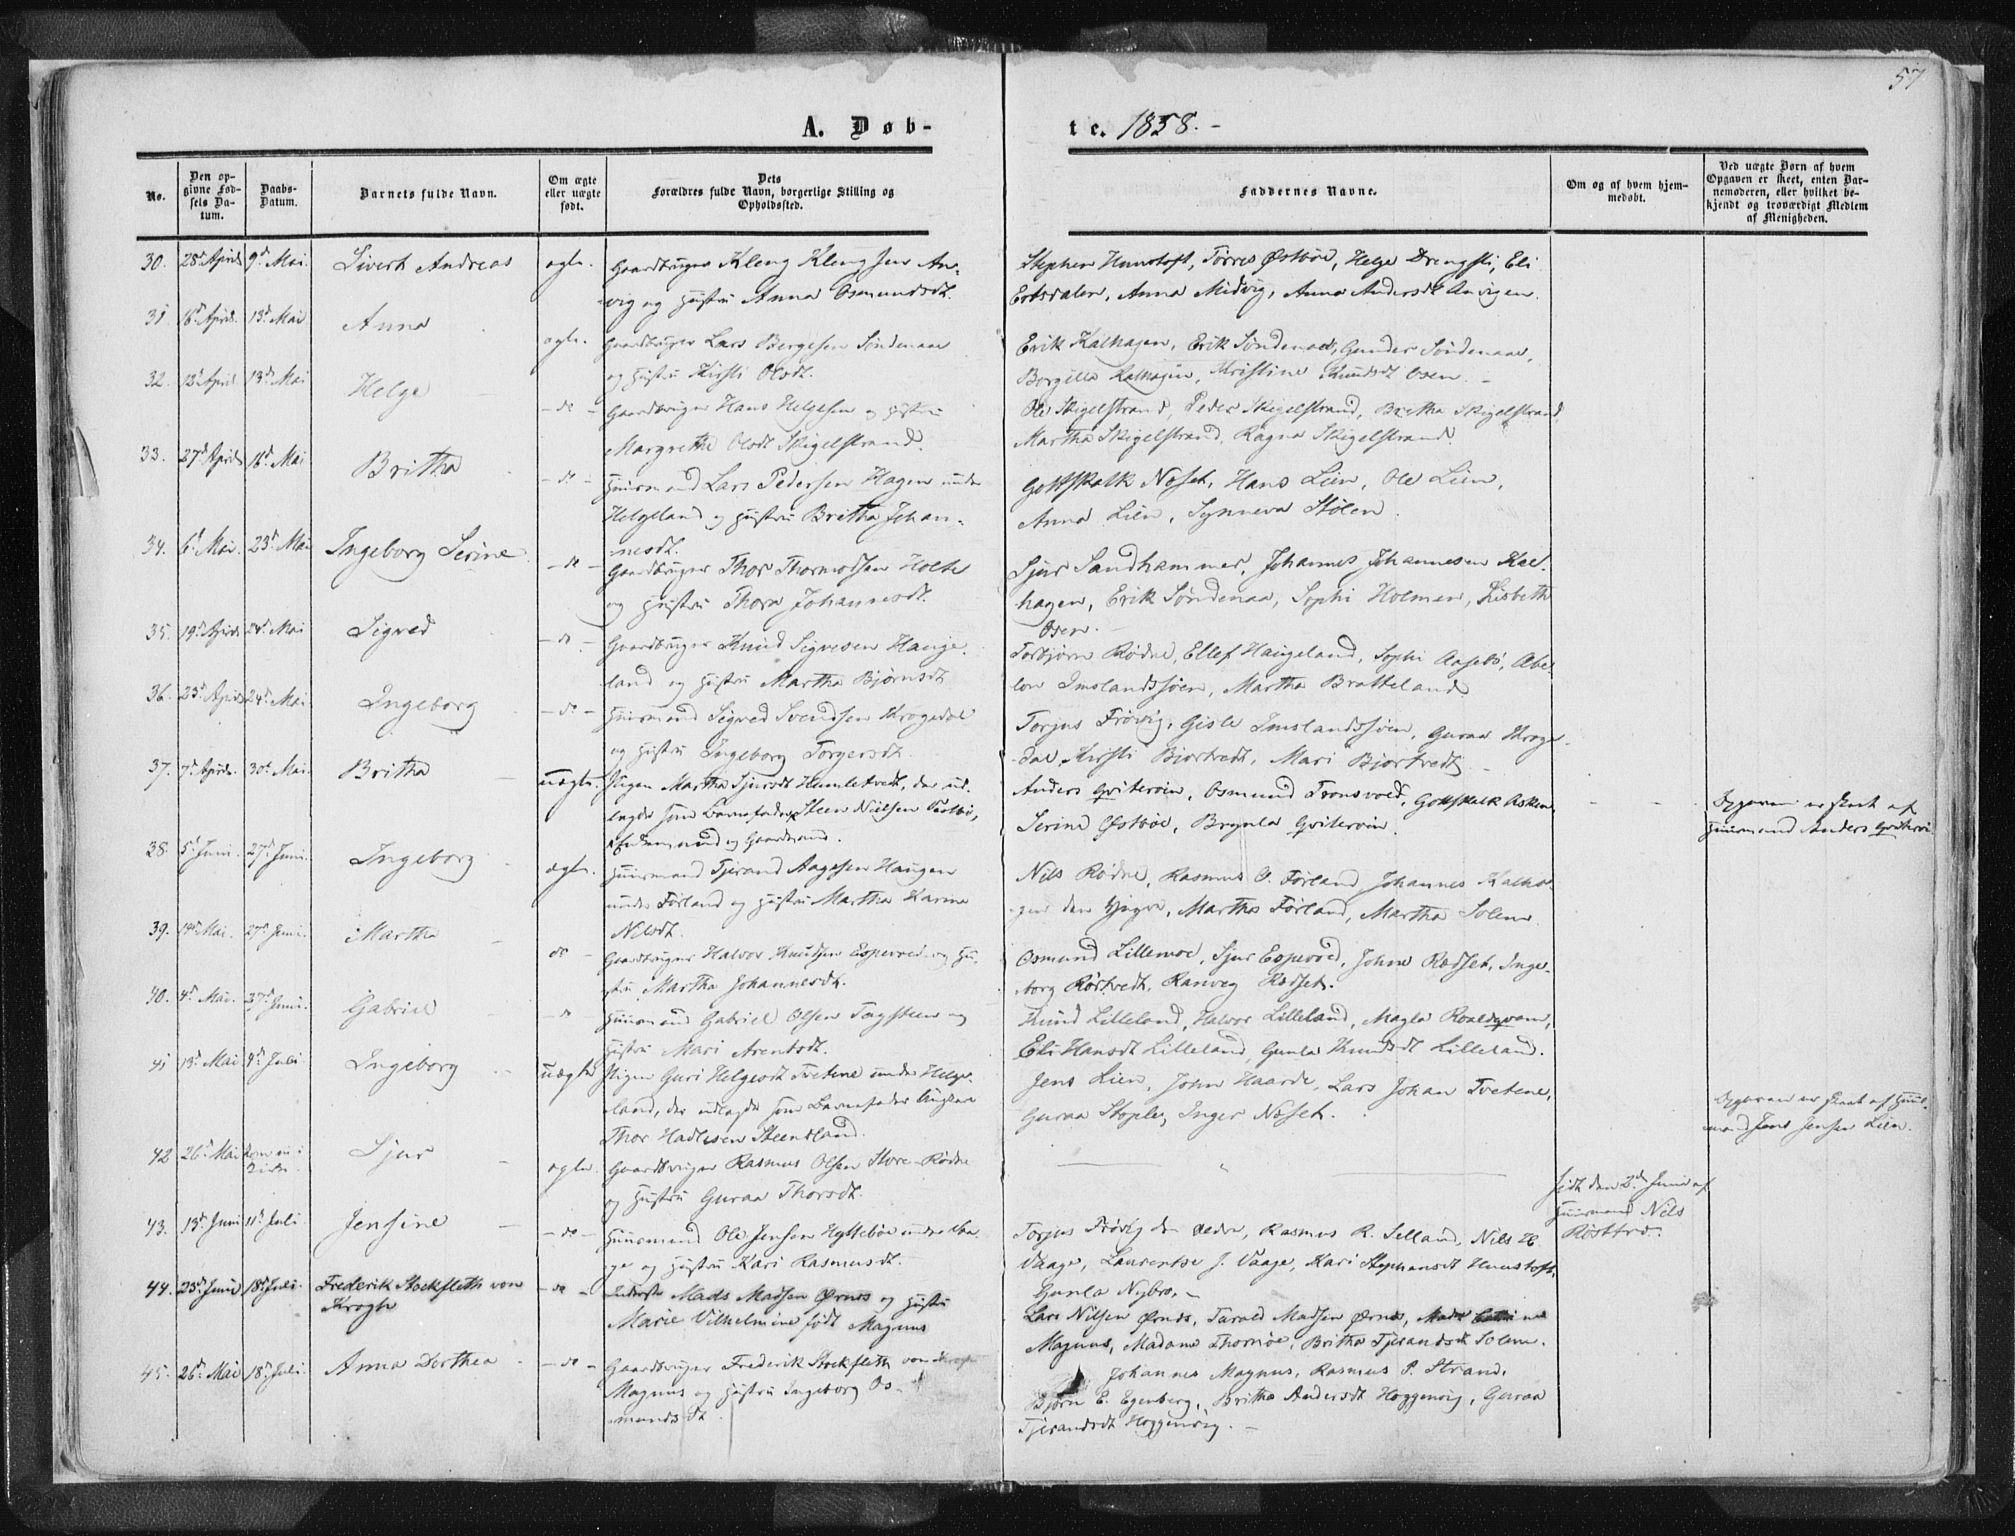 57
A. Døb-
te. 1858.-
No.
Den op-
givne Fød-
sels Da-
tum.
Daabs-
Datum.
Barnets fulde Navn.
Om ægte
eller uægte
født.
Dets
Forældres fulde Navn, borgerlige Stilling og
Opholdssted.
Faddernes Navne.
Om og af hvem hjem-
medøbt.
Ved uægte Børn af hvem
Opgaven er skeet, enten Bar-
nemoderen, eller hvilket be-
kjendt og troværdigt Medlem
af Menigheden.
30. 28d April 9d Mai. Sivert Andreas ægte. Gaardbruger Kleng Klengsen An-
vig og Hustru Anna Osmundsdt.
Stephen Hunstoft, Tørres Østbøe, Helge Drengsli, Eli
Ertsdalen, Anna Midvig, Anna Andersdt Anvigen.
31. 16d April. 13d Mai Anna ægte. Gaardbruger Lars Bergesen Søndenaa
og Hustru Kirsti Olsdt.
Erik Kalhagen, Erik Søndenaa, Gunder Søndenaa,
Borgilla Kalhagen, Kristine Knudsdt Osen. -
32. 12d April 13d Mai Helge - do - Gaardbruger Hans Helgesen og Hustru
Margrethe Olsdt Skigelstrand.
Ole Skigelstrand, Peder Skigelstrand, Britha Skigelstrand,
Martha Skigelstrand, Ragna Skigelstrand.
33. 27d April 16d Mai Britha - do - Huusmand Lars Pedersen Hagen under
Helgeland og Hustru Britha Johan-
nesdt.
Gottskalk Næset, Hans Lien, Ole Lien,
Anna Lien, Synneva Stølen.
34. 6d Mai. 23d Mai Ingeborg Serine - do - Gaardbruger Thor Thormodsen Holte
og Hustru Thora Johannesdt.
Sjur Sandhammer, Johannes Johannesen Kal-
hagen, Erik Søndenaa, Sophi Holmen, Lisbeth
Osen. -
35. 19d April 24d Mai Sigved - do - Gaardbruger Knud Sigvesen Hauge-
land og Hustru Martha Bjørnsdt
Torbjørn Rødne, Ellef Haugeland, Sophi Aasebø, Abe-
lon Imslandssjøen, Martha Bratteland
36. 23d April 24d Mai. Ingeborg - do - Huusmand Sigved Svendsen Krogedal
og Hustru Ingeborg Torgersdt.
Torjus Frøvig, Gisle Imslandssjøen, Guraa Kroge-
dal, Kirsti Bjortvedt, Mari Bjortvedt, -
37. 7d April. 30d Mai. Britha uægte. Pigen Martha Sjursdt Humletvedt, der ud-
lagde som Barnefader Steen Nielsen
og Gaardmand.
Anders Qvitevin, Osmund Tronsvold, Gottskalk Asken
Serine Østbøe, Brynla Qvitevin.
Opgaven er skeet af
Huusmand Anders Qvitevi.
38. 5d Juni. 27d Juni. Ingeborg ægte. Huusmand Tjerand Aagesen Haugen
under Førland og Hustru Martha Karine
Nilsdt.
Nils Rødne, Rasmus O. Førland, Johannes Kalha-
gen den yngre, Martha Førland, Martha Solem
39. 14d Mai. 27d Juni. Martha do - Gaardbruger Halvor Knudsen Espevoed og Hu-
stru Martha Johannesdt.
Osmund Lillemoe, Sjur Espevoed, Johne Rødset, Inge-
borg Rørtvedt, Ranveg Rødset.
40. 4d Mai. 27d Juni. Gabriel - do Huusmand Gabriel Olsen Tagsteen og
Hustru Mari Arentsdt.
Knud Lilleland, Halvor Lilleland, Magla Roaldqvam,
Eli Hansdt Lilleland, Gunla Knudsdt Lilleland.
41 13d Mai 9d Juli. Ingeborg uægte Pigen Guri Helgesdt Tvetene under Helge-
land, der udlagde som Barnefader Ungkarl
Thor Hadlesen Steensland.
Jens Lien, John Haarde, Lars Johan Tvetene,
Guraa Stople, Inger Næset.
Opgaven er skeet af Huus-
mand Jens Jensen Lien.
42 26d Mai kom ei i
Kirke. Sjur - ægte. Gaardbruger Rasmus Olsen Store-Rødne
og Hustru Guraa Thorsdt.
født den 2d Juni af
Huusmand Nils
43. 13d Juni 11d Juli Jensine - - do - Huusmand Ole Jensen Hyttebøe under Vaa-
ge og Hustru Kari Rasmusdt.
Torjus Frøvig den ældre, Rasmus R. Selland, Nils H.
Vaage, Laurentse J. Vaage, Kari Stephansdt Hunstoft,
Gunla Nybro, -
44. 23d Juni 18d Juli. Frederik Stockfleth von
Krogh - do - Inderste Mads Madsen Ørnes og Hustru
Marie Vilhelmine født Magnus
Lars Nilsen Ørnes, Tarald Madsen Ørnes,
Magnus, Madame Thornøe, Britha Tjerandsdt Solem.
45. 26d Mai 18d Juli. Anna Dorthea - do - Gaardbruger Frederik Stockfleth von Krogh
Magnus og Hustru Ingeborg Os-
mundsdt.
Johannes Magnus, Rasmus P. Strand,
Bjørn E. Egenberg, Britha Andersdt Hoggenvig, Guraa
Tjerandsdt Hoggenvig. -